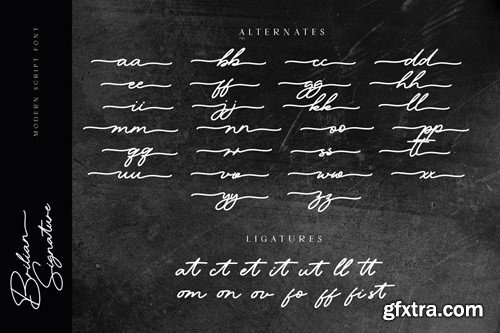 ALTERNATES
aa bb cc dd
ee ff gg hh
ii jj kk ll
mm nn oo pp
qq rr ss tt
uu vv ww xx
yy zz
LIGATURES
at ct et it ut ll tt
om on ov fo ff fi st
MODERN SCRIPT FONT
Brilian
Signature
gfxtra.com